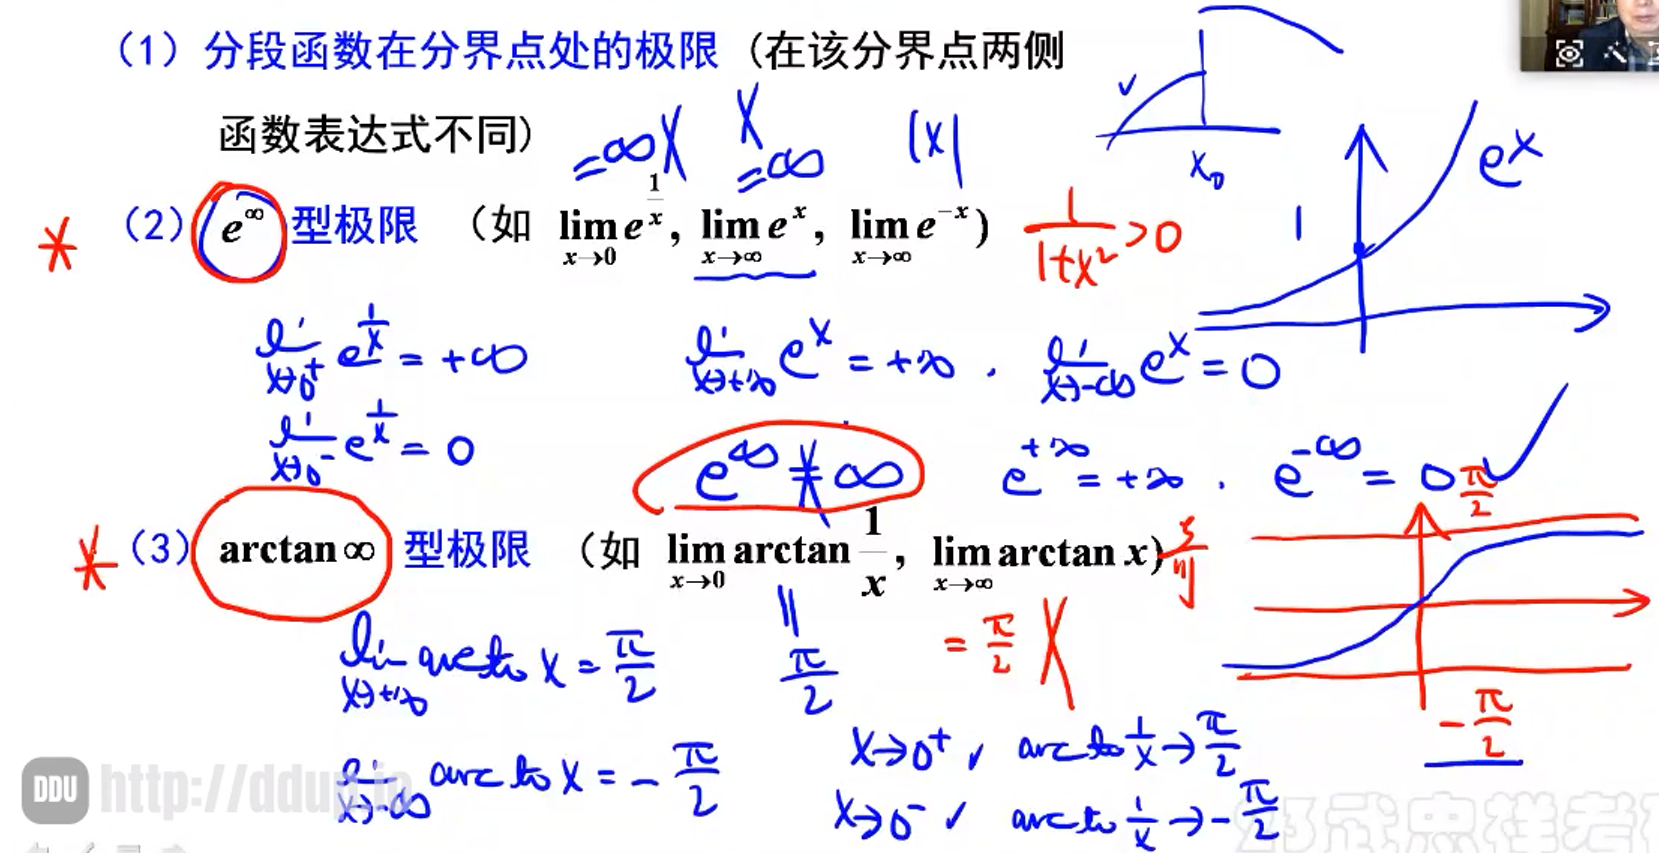 (1) 分段函数在分界点处的极限 (在该分界点两侧
函数表达式不同)
=∞ X
X =∞
|x|
x₀
e^x
1
* (2) e^∞ 型极限 (如 lim_{x→0} e^{1/x}, lim_{x→∞} e^x, lim_{x→∞} e^{-x})
1/(1+x²) > 0
lim_{x→0⁺} e^{1/x} = +∞
lim_{x→+∞} e^x = +∞ . lim_{x→-∞} e^x = 0
lim_{x→0⁻} e^{1/x} = 0
e^∞ ≠ ∞
e^{+∞} = +∞ . e^{-∞} = 0
π/2
* (3) arctan ∞ 型极限 (如 lim_{x→0} arctan 1/x, lim_{x→∞} arctan x)
lim_{x→+∞} arctan x = π/2
= π/2
= π/2 X
-π/2
lim_{x→-∞} arctan x = -π/2
x→0⁺ ✓ arctan 1/x → π/2
x→0⁻ ✓ arctan 1/x → -π/2
DDU http://ddup.i
武忠祥考